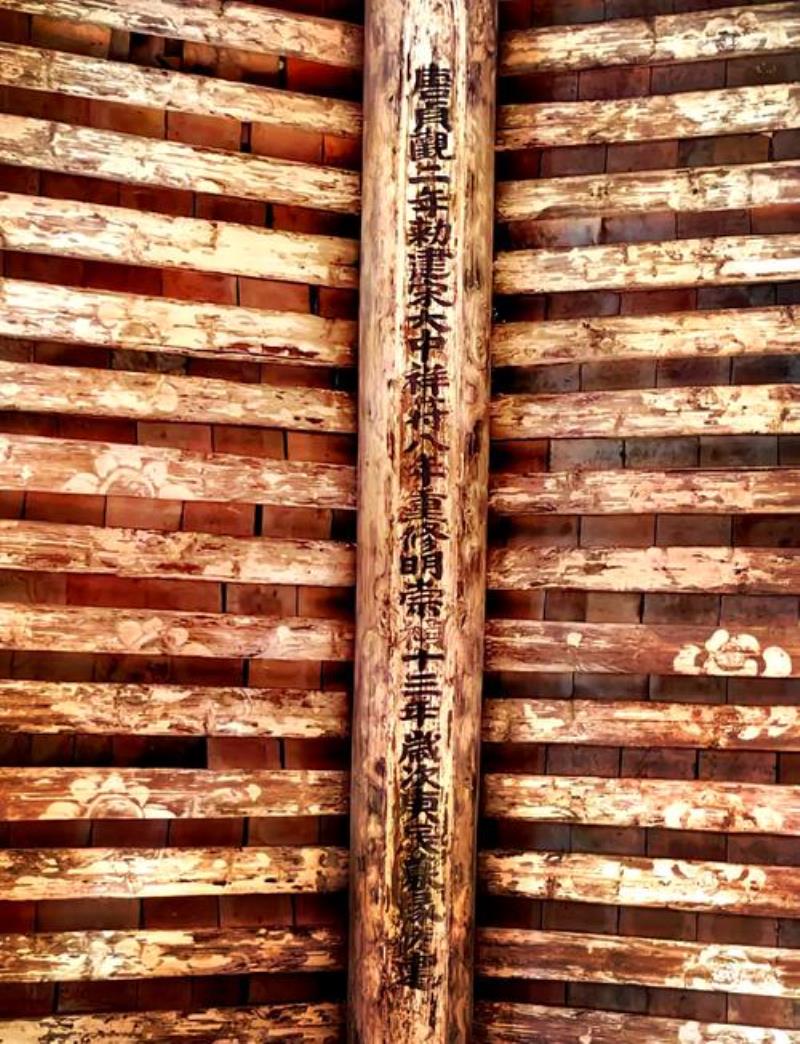 唐貞觀二年勅建宋大中祥符八年重修明崇禎十三年歲次庚辰建